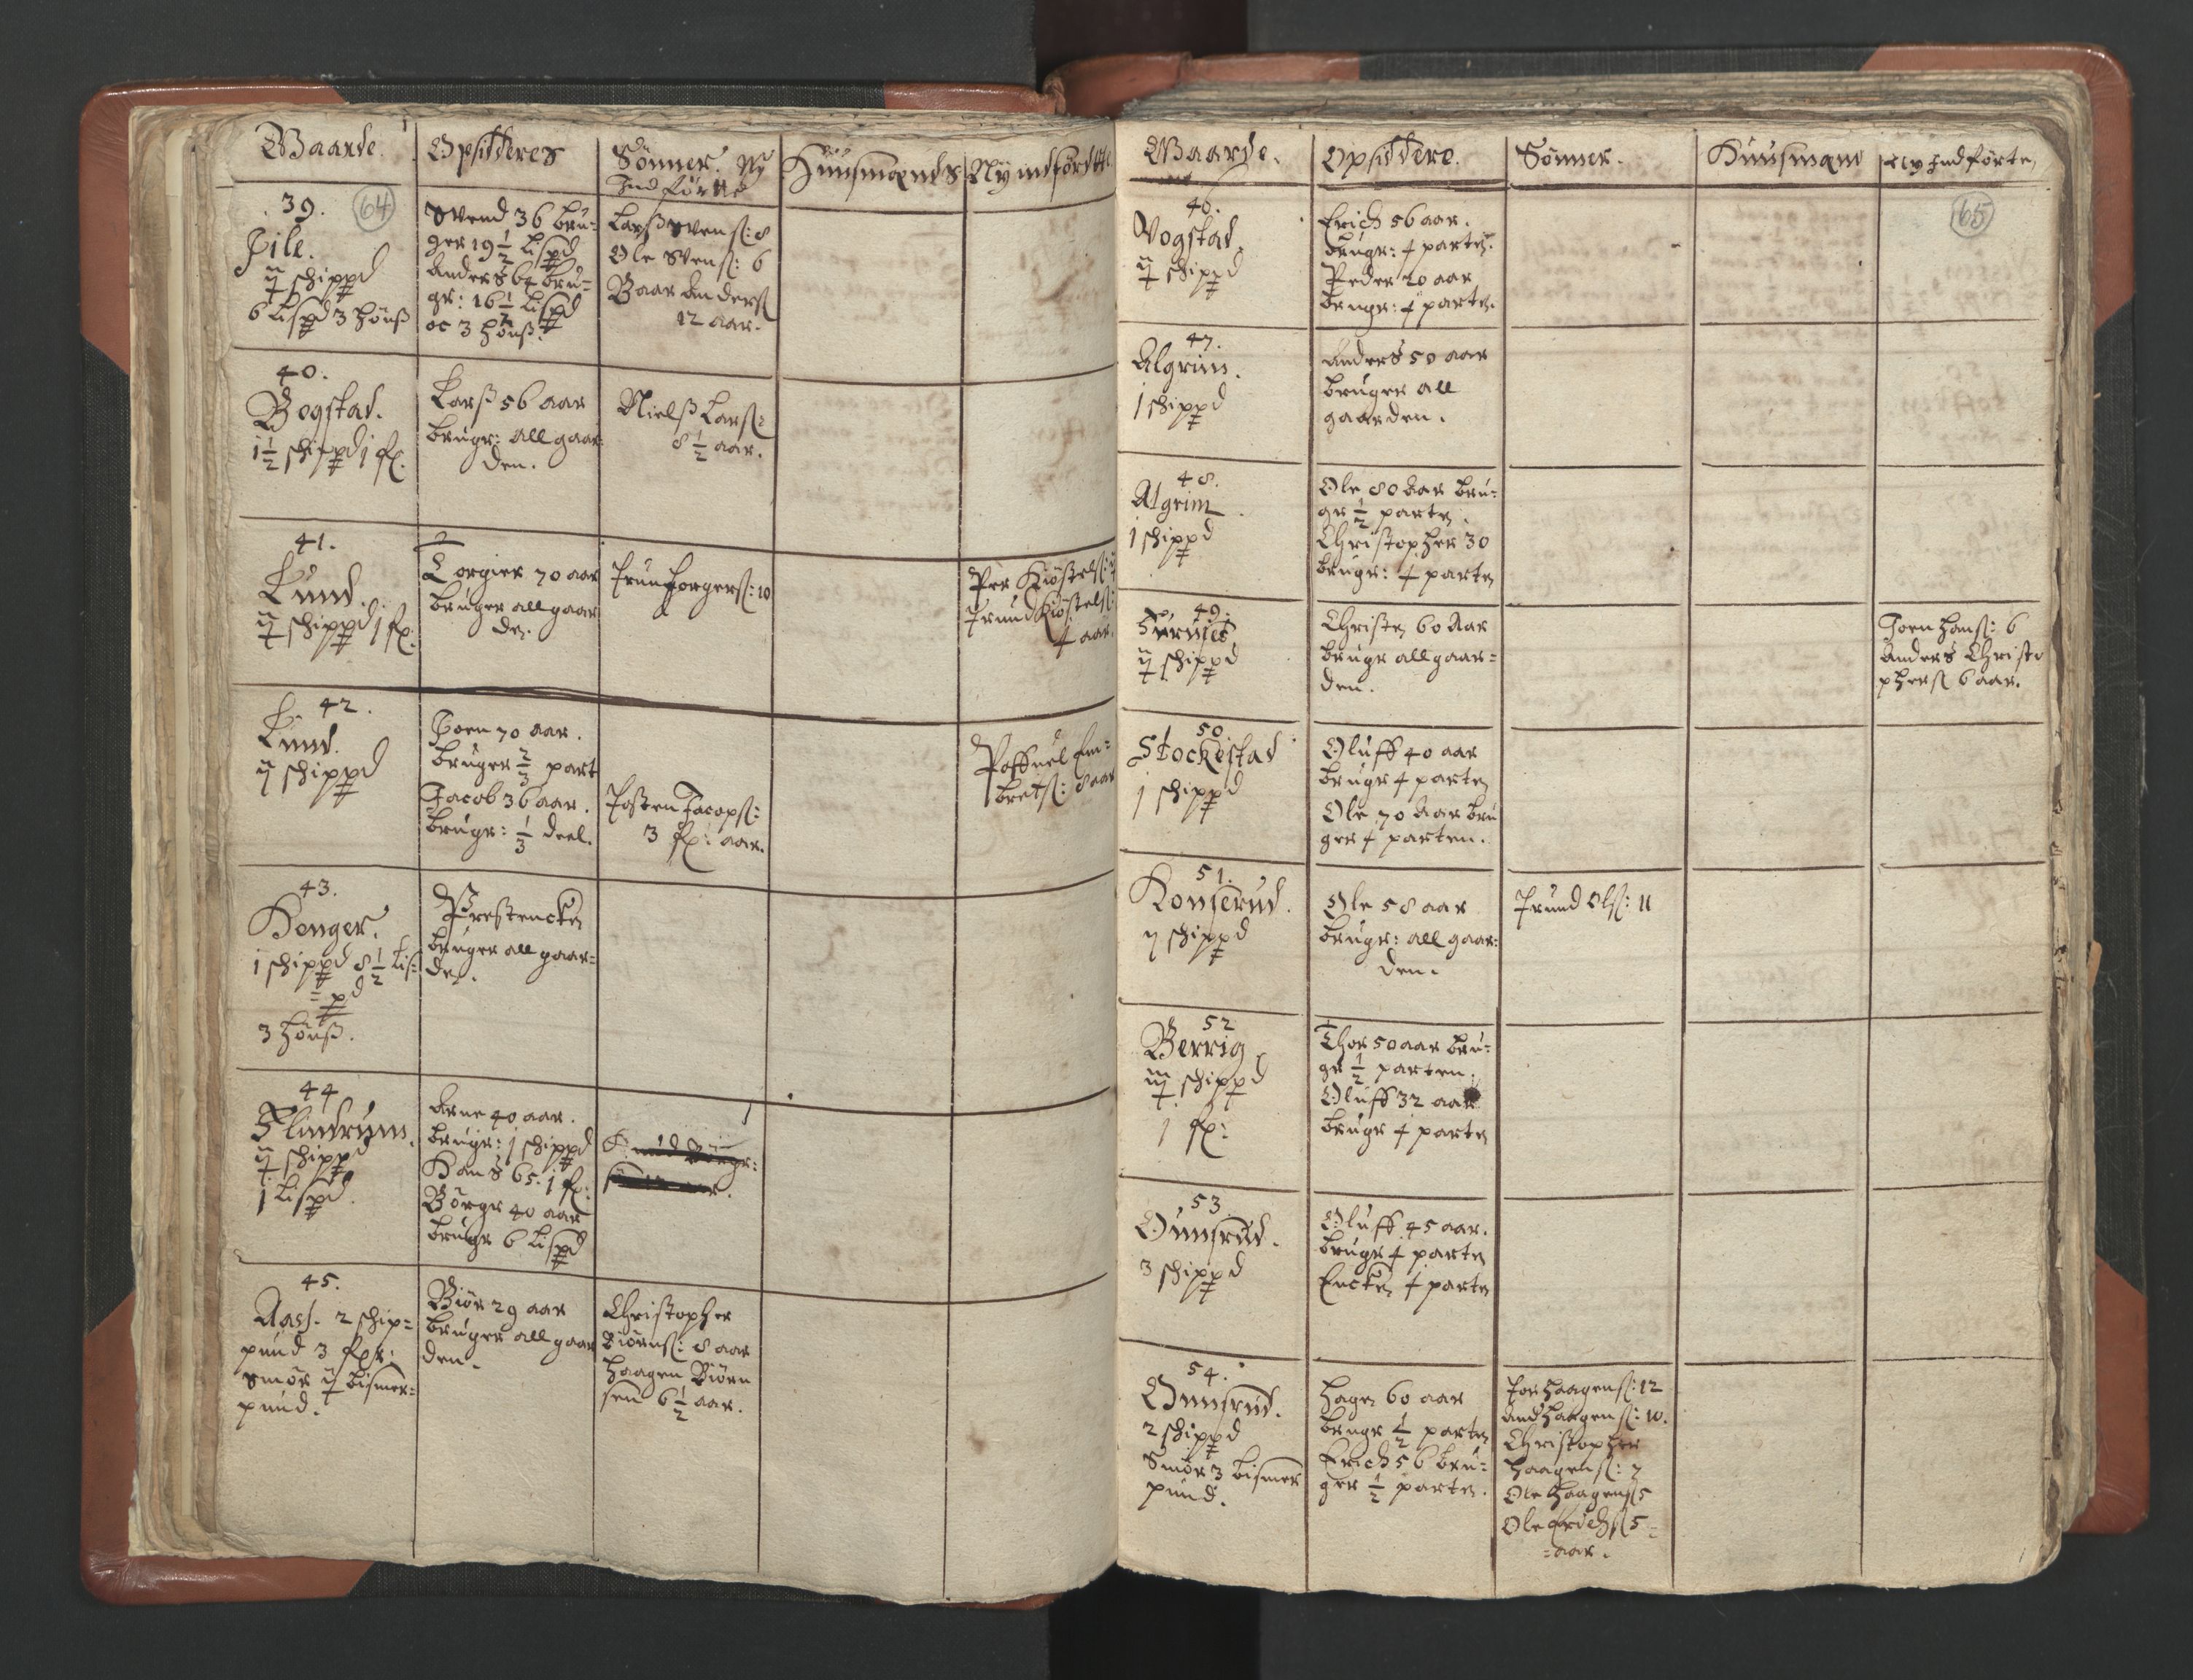 Gaarde.
Opsidderes
Sönner. Ny
Indförtte
Huusmænds
Ny indfördtte
39.
64
Pile.
schippd
6 Lispd 3 Höns
Svend 36 bru=
ger 19 1/2 Lispd
Anders 64 bru=
gr: 16 1/2 Lispd
oc 3 höns.
Larss Svens: 8
Ole Svens: 6
Baar Anders
12 aar.
40.
Bogstad.
1 1/2 schippd 1 fx.
Larss 56 aar
brugr: all gaar=
den.
Nielss Larss:
8 1/2 aar.
41.
Lund.
schippd 1 fx.
Torgier 70 aar
bruger all gaar
den.
Trun Torgerss: 10
Per Kiöstels:
Trund Kiöstels:
4 aar.
42.
Lund.
schippd
Joen 70 aar.
bruger 2/3 part
Jacob 36 aar.
brugr: 1/3 deel.
Tosten Jacops:
3 fx: aar.
Poffuel Em=
brets: 8 aar
43.
Henger.
1 schippd 8 1/2 Lis=
=pd
3 höns.
Prestencken
bruger all gaar=
den.
44
schippd
1 Lispd.
Arne 40 aar.
brugr: 1 schippd
Hans 65. 1 fx:
Börgr 40 aar
brugr 6 Lispd
45.
Aas. 2 schip=
pund 3 fxr:
Smör bismer=
pund.
Biör 29 aar
bruger all gaar
den.
Christopher
Biörns: 8 aar
Haagen Biörn
sen 6 1/2 aar.
Gaarde.
Opsiddere.
Sönner.
Huusmænd
Ny Indförte
65
46.
Vogstad.
schippd
Erich 56 aar.
brugr: parten.
Peder 20 aar
brugr: parten.
47.
Algrim.
1 schippd
Anders 50 aar
bruger all
gaarden.
48.
Algrim
1 schippd
Ole 80 Aar bru=
gr 1/2 parten.
Christopher 30
brugr: parten
49.
schippd
Christen 60 Aar
brugr all gaar=
den.
Joen Hans: 6
Anders Christo
phers 6 aar.
50
Stockestad
1 schippd
Oluff 40 aar
brugr parten
Ole 70 Aar bru
ger parten.
51.
Konserud.
schippd
Ole 58 aar
brugr: all gaar=
den.
Trund Ols: 11
52
Berrig
schippd
1 fx:
Thor 50 aar bru=
gr 1/2 parten.
Oluff 32 aar
brugr parten
53.
Ounsrud.
3 schippd
Oluff 45 aar.
brugr parten
Encken parten
54.
Ounsrud.
2 schippd
Smör 3 bismer
pund.
Hagen 60 aar
brugr 1/2 parten
Erich 56 bru=
ger 1/2 parten.
Tor Haagens: 12
And Haagens: 10.
Christopher
Haagens: 7
Ole Haagens 5
Ole Erichs 5=
=aar.